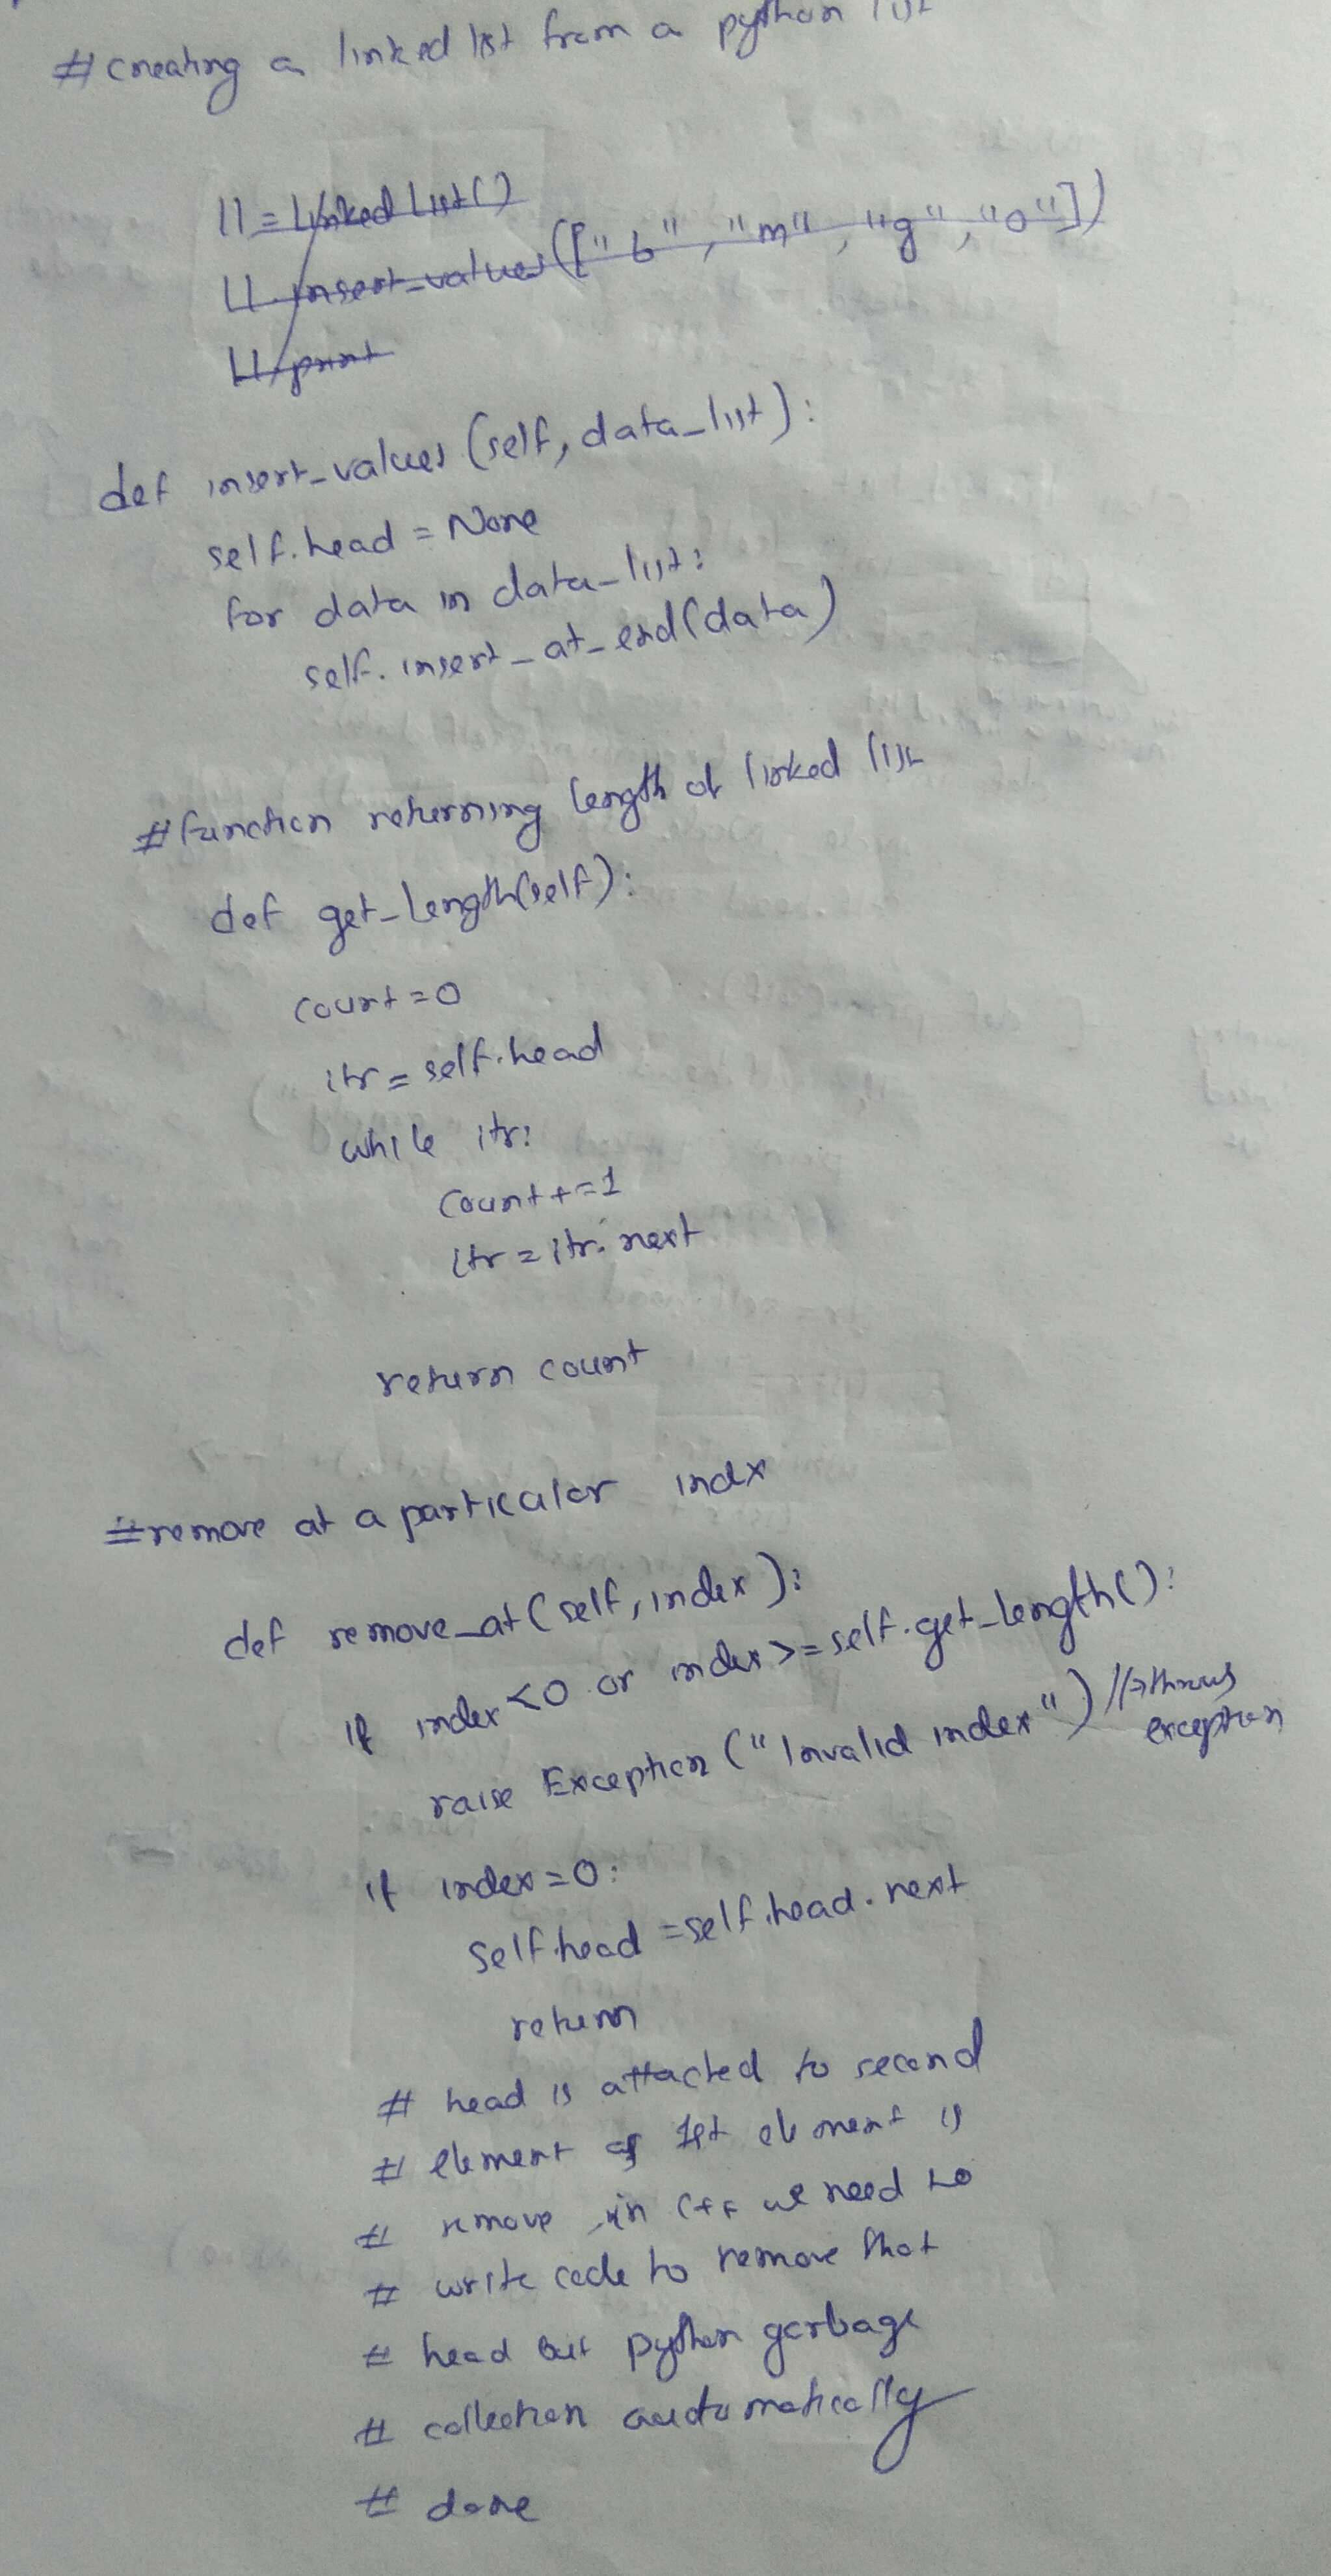 #creating a linked list from a python list
ll = Linked List()
ll.insert_values(["b", "m", "g", "o"])
ll.print
def insert_values (self, data_list):
self.head = None
for data in data_list:
self.insert_at_end(data)
#function returning length of linked list
def get_length(self):
count=0
itr = self.head
while itr:
count+=1
itr = itr.next
return count
#remove at a particular indx
def remove_at(self, index):
if index<0 or index>=self.get_length():
raise Exception ("Invalid index") //=>throws
exception
if index=0:
self.head =self.head.next
return
# head is attacted to second
# element as 1st element is
# remove in C++ we need to
# write code to remove that
# head but python garbage
# collection automatically
# done